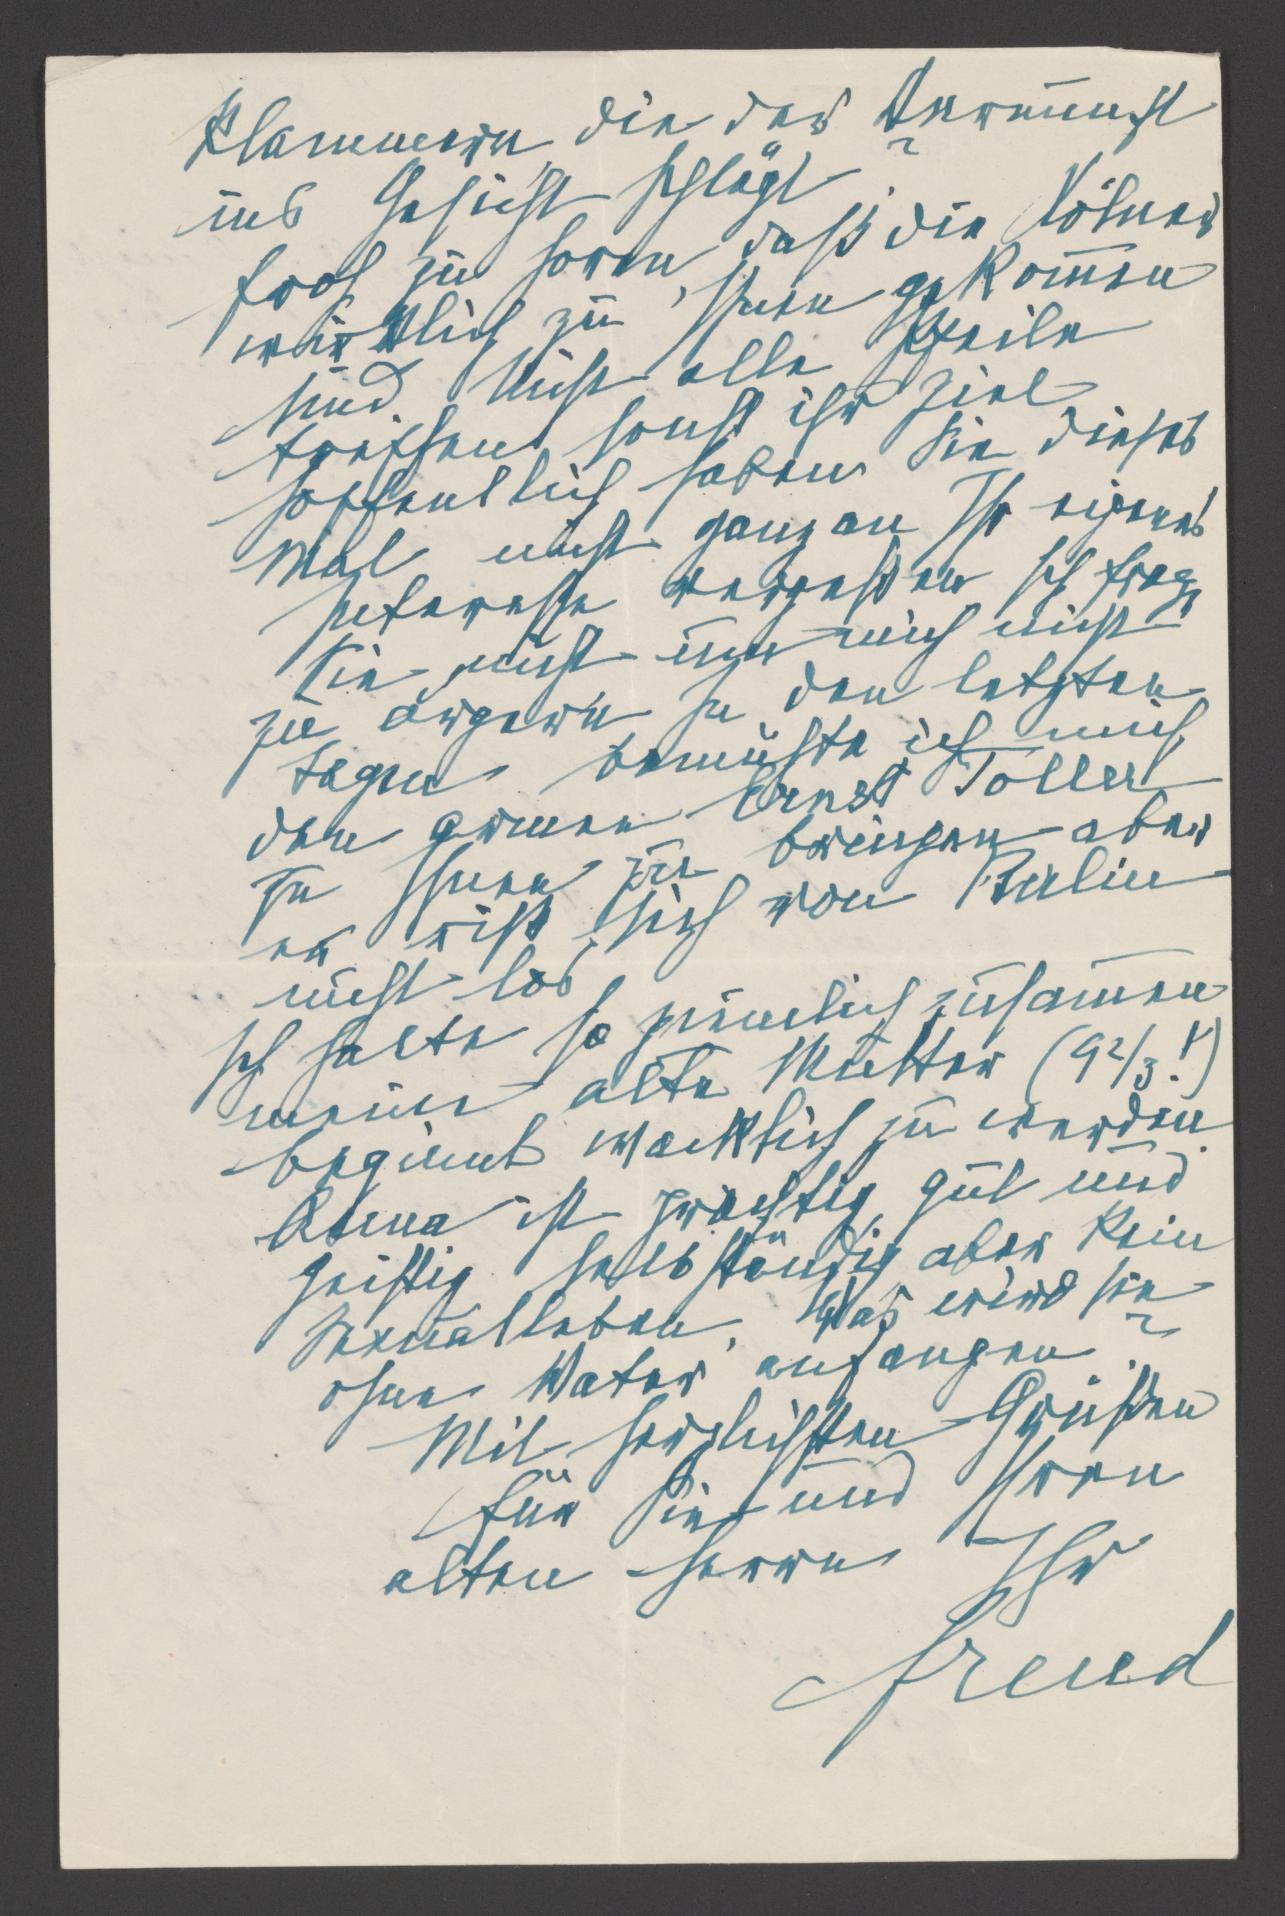 klammern, die der Vernunft
ins Gesicht schlägt?
froh zu hören, daß die Kölner
wirklich zu Ihnen gekommen
sind. Nicht alle Pfeile
treffen sonst ihr Ziel
hoffentlich haben Sie dieses
Mal nicht ganz an Ihr eigenes
Interesse vergessen Ich frage
Sie nicht um mich nicht
zu ärgern In den letzten
Tagen bemühte ich mich
den armen Ernst Toller
zu Ihnen zu bringen aber
er riß sich von Berlin
nicht los.
Ich halte so ziemlich zusammen
meine alte Mutter (92/3!)
beginnt wacklich zu werden.
Anna ist prächtig, gut und
geistig selbständig aber kein
Sexualleben. Was wird sie
ohne Vater anfangen?
Mit herzlichsten Grüßen
für Sie und Ihren
alten Herrn Ihr
Freud